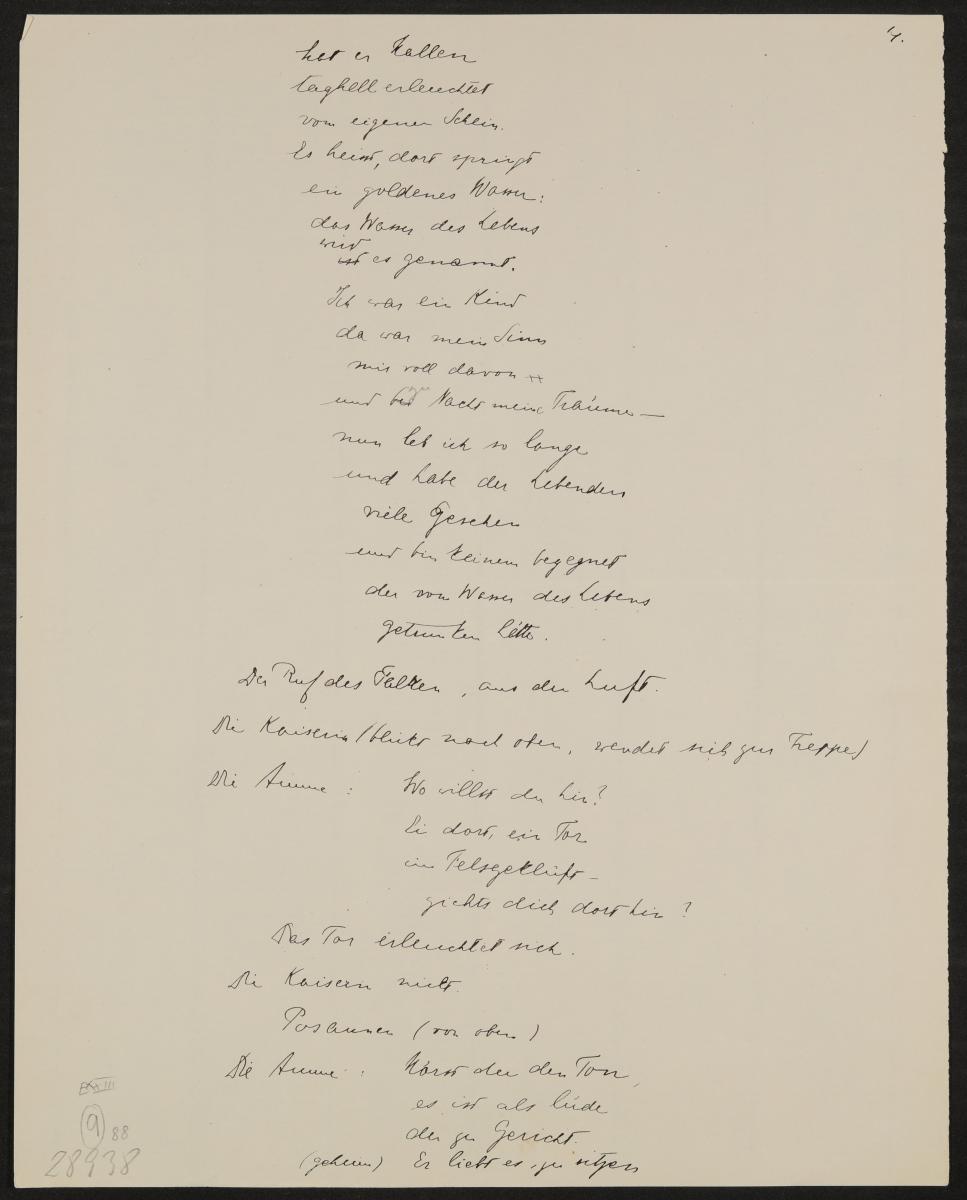 4.
hat er Hallen
taghell erleuchtet
vom eigenen Schein.
Es heisst, dort springt
ein goldenes Wasser:
das Wasser des Lebens
wird
ist es genannt.
Ich war ein Kind
da war mein Sinn
mir voll davon
und bei Nacht meine Träume —
nun leb ich so lange
und habe der Lebenden
viele gesehen
und bin keinem begegnet
der vom Wasser des Lebens
getrunken hätte.
Der Ruf des Falken, aus der Luft.
Die Kaiserin (blickt nach oben, wendet sich zur Treppe)
Die Amme : Wo willst du hin?
Ei dort, ein Tor
im Felsgeklüft —
zichts dich dort hin?
Das Tor erleuchtet sich.
Die Kaiserin nickt.
Posaunen (von oben)
Die Amme : Hörst du den Ton,
es ist als lüde
der zu Gericht.
(geheim) Er liebt es, zu sitzen
III
9 88
28938